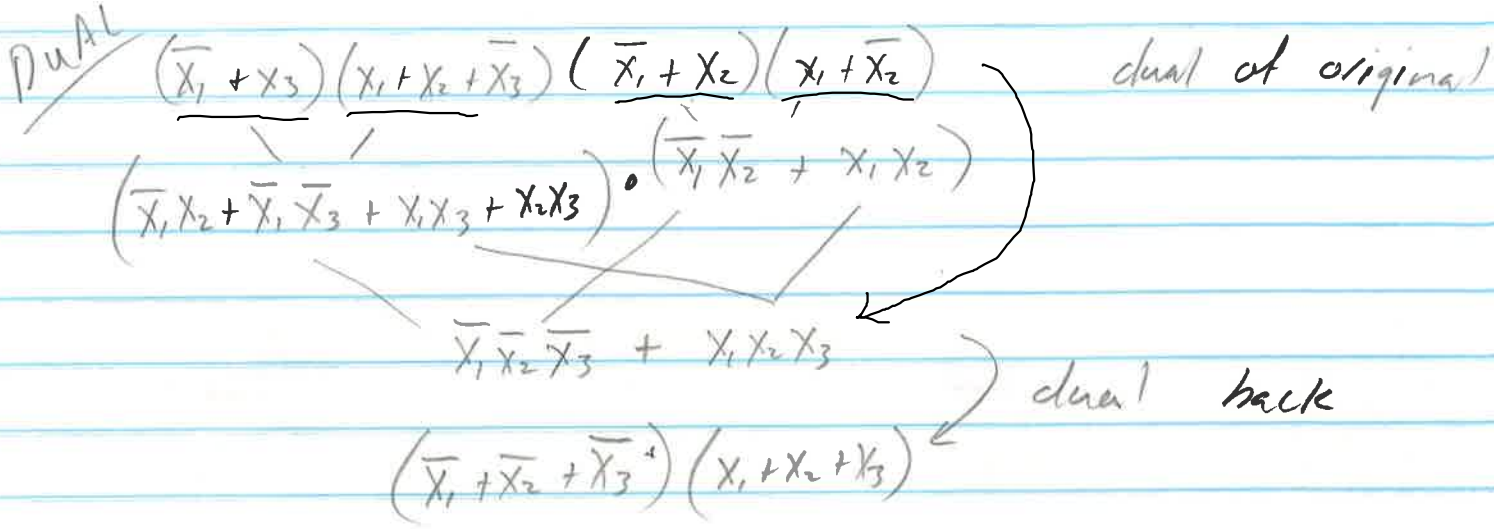 DUAL (x̅₁ + x₃)(x₁ + x₂ + x̅₃)(x̅₁ + x₂)(x₁ + x̅₂) dual of original
(x̅₁x₂ + x̅₁x̅₃ + x₁x₃ + x₂x₃) • (x̅₁x̅₂ + x₁x₂)
x̅₁x̅₂x̅₃ + x₁x₂x₃
dual back
(x̅₁ + x̅₂ + x̅₃)(x₁ + x₂ + x₃)